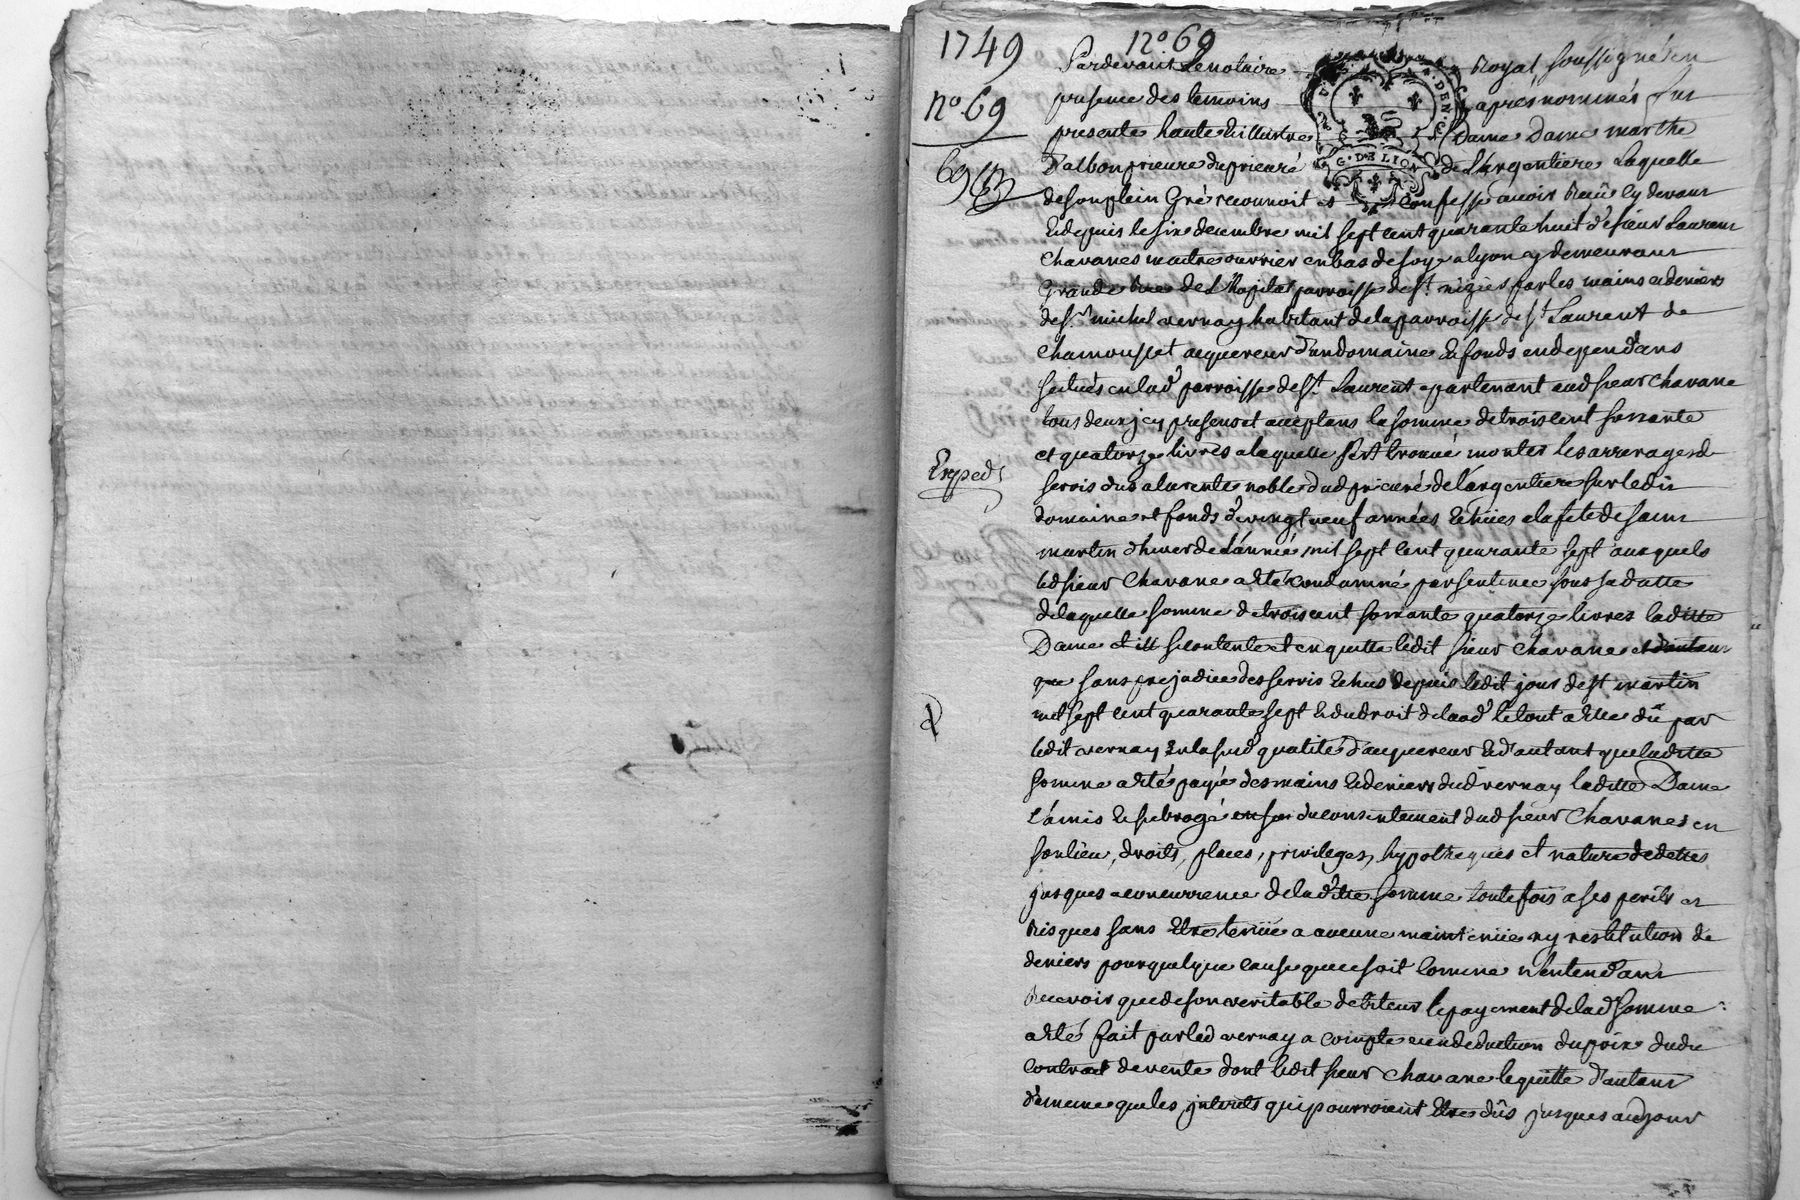 1749
n.o 69
n.o 69
69
Exped.
Pardevant Le notaire Royal soussigné en
presence des temoins apres nommés fut
presente haute et illustre Dame Dame marthe
D'albon prieure du prieuré de Largentiere Laquelle
de son plein Gré reconnoit et confesse avoir Receu cy devant
G. DE LION
Et depuis le six decembre mil sept cent quarante huit de sieur Laurent
Chavanes maitre ouvrier en bas de soye a lyon y demeurant
Grande Rue de L'hopital parroisse de st nizier par les mains et deniers
de sr michel vernay habitant de la parroisse de st Laurent de
Chamousset acquereur d'un domaine et fonds en dependans
situés en lad parroisse de st Laurent apartenant aud sieur Chavane
tous deux icy presens et acceptans la somme de trois cent soixante
et quatorze livres a laquelle s'est trouvé monter les arrerages de
servis dus a la rente noble dud prieuré de L'argentiere sur ledit
domaine et fonds de vingt neuf années Echües a la fete de saint
martin d'hiver de L'année mil sept cent quarante sept auxquels
led sieur Chavane a Eté condamné par sentence sous sa datte
de laquelle somme de trois cent soixante quatorze livres laditte
Dame se contente et en quitte ledit sieur Chavane et d'autant
que sans prejudice des servis Echus depuis ledit jour de st martin
mil sept cent quarante sept Et du droit de laod le tout a Elle dû par
ledit vernay En la sud qualité d'acquereur Et d'autant que laditte
somme a Eté payée des mains Et deniers dud vernay laditte Dame
L'a mis Et subrogé en son du consentement dud sieur Chavanes en
son lieu, droits, places, privileges, hypotheques et nature de dettes
jusques a concurrence de laditte somme toutefois a ses perils et
Risques sans Etre tenüe a aucune maintenüe ny restitution de
deniers pour quelque cause que ce soit comme n'entendant
Recevoir que de son veritable debiteur le payement de lad somme
a Eté fait par led vernay a compte et en deduction du prix dudit
contract de vente dont ledit sieur Chavane le quitte d'autant
de meme que les interets qui pourroient Etre dûs jusques a ce jour